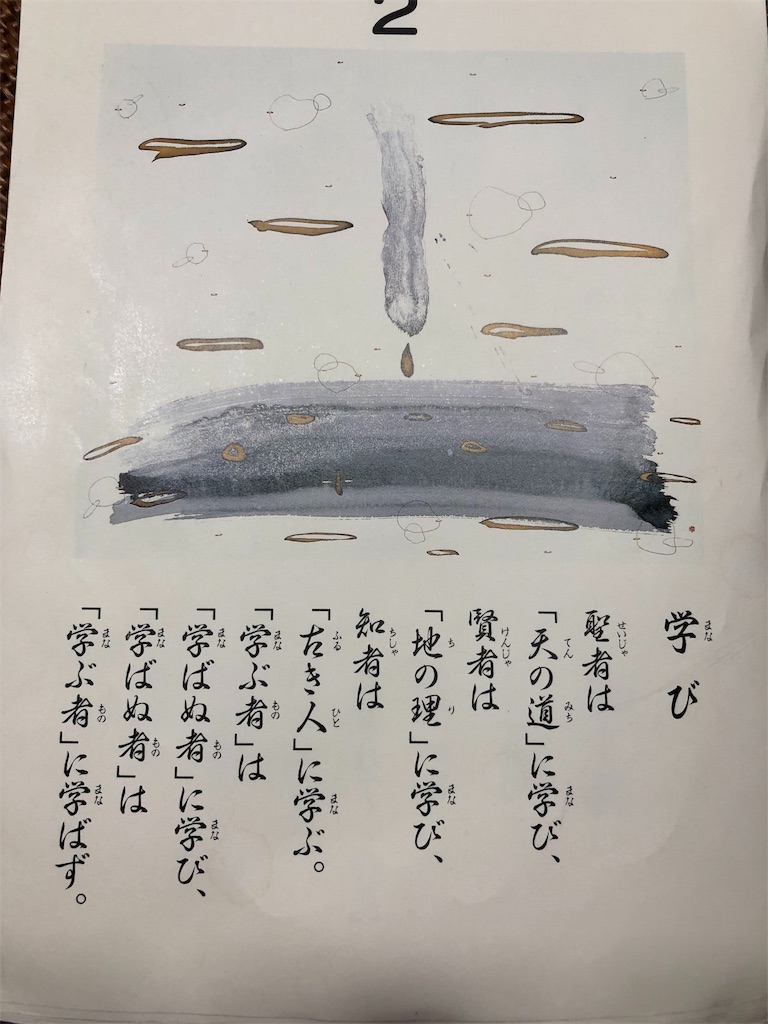 2
学び
聖者は
「天の道」に学び、
賢者は
「地の理」に学び、
知者は
「古き人」に学ぶ。
「学ぶ者」は
「学ばぬ者」に学び、
「学ばぬ者」は
「学ぶ者」に学ばず。